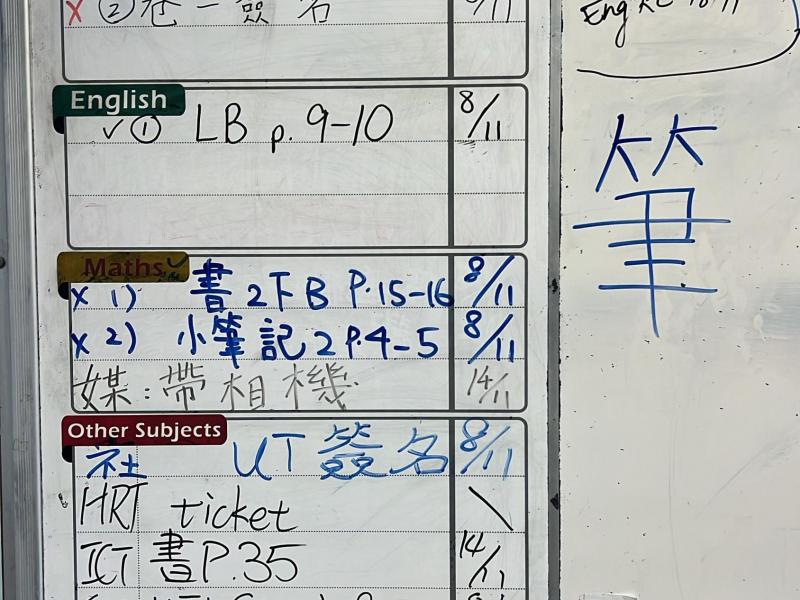 X ② 卷一簽名 8/11
Eng RE
English
✓ ① LB p. 9-10 8/11
筆
Maths ✓
X 1) 書2下B P.15-16 8/11
X 2) 小筆記2 P.4-5 8/11
媒：帶相機 14/11
Other Subjects
社 UT簽名 8/11
HRT ticket \
ICT 書P.35 14/11